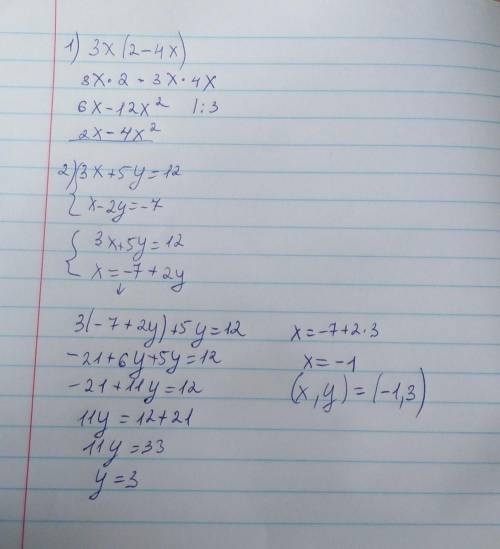 1) 3x(2-4x)
3x·2-3x·4x
6x-12x² |:3
2x-4x²
2) { 3x+5y=12
x-2y=-7
{ 3x+5y=12
x=-7+2y
↓
3(-7+2y)+5y=12
-21+6y+5y=12
-21+11y=12
11y=12+21
11y=33
y=3
x=-7+2·3
x=-1
(x,y)=(-1,3)